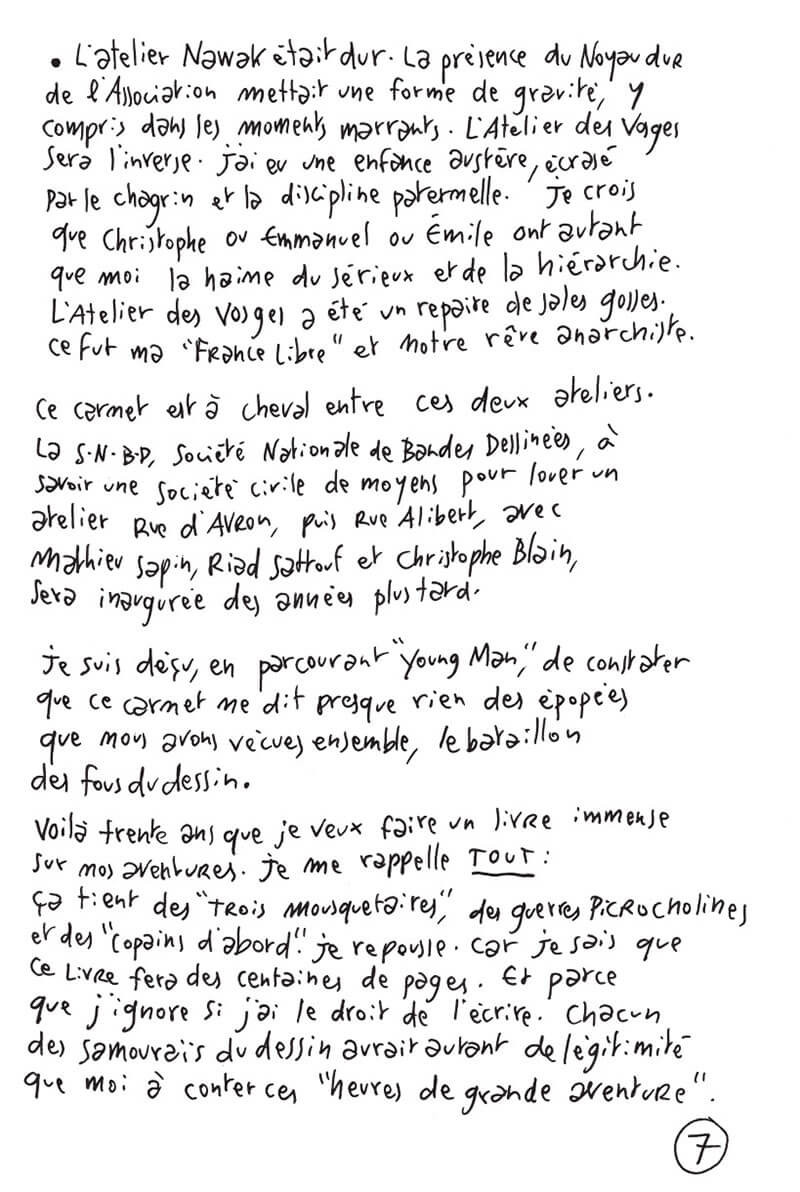 • L'atelier Nawak était dur. La présence du Noyau dur
de l'Association mettait une forme de gravité, y
compris dans les moments marrants. L'Atelier des Vosges
sera l'inverse. J'ai eu une enfance austère, écrasé
par le chagrin et la discipline paternelle. Je crois
que Christophe ou Emmanuel ou Émile ont autant
que moi la haine du sérieux et de la hiérarchie.
L'Atelier des Vosges a été un repaire de sales gosses.
Ce fut ma "France Libre" et notre rêve anarchiste.
Ce carnet est à cheval entre ces deux ateliers.
La S.N.B.D, Société Nationale de Bandes Dessinées, à
savoir une société civile de moyens pour louer un
atelier Rue d'Avron, puis Rue Alibert, avec
Mathieu Sapin, Riad Sattouf et Christophe Blain,
sera inaugurée des années plus tard.
Je suis déçu, en parcourant "Young Man," de constater
que ce carnet ne dit presque rien des épopées
que nous avons vécues ensemble, le bataillon
des fous du dessin.
Voilà trente ans que je veux faire un livre immense
sur mos aventures. Je me rappelle TOUT :
ça tient des "Trois Mousquetaires", des guerres Picrocholines
et des "Copains d'abord". Je repousse. Car je sais que
ce livre fera des centaines de pages. Et parce
que j'ignore si j'ai le droit de l'écrire. Chacun
des samouraïs du dessin aurait autant de légitimité
que moi à conter ces "heures de grande aventure".
7